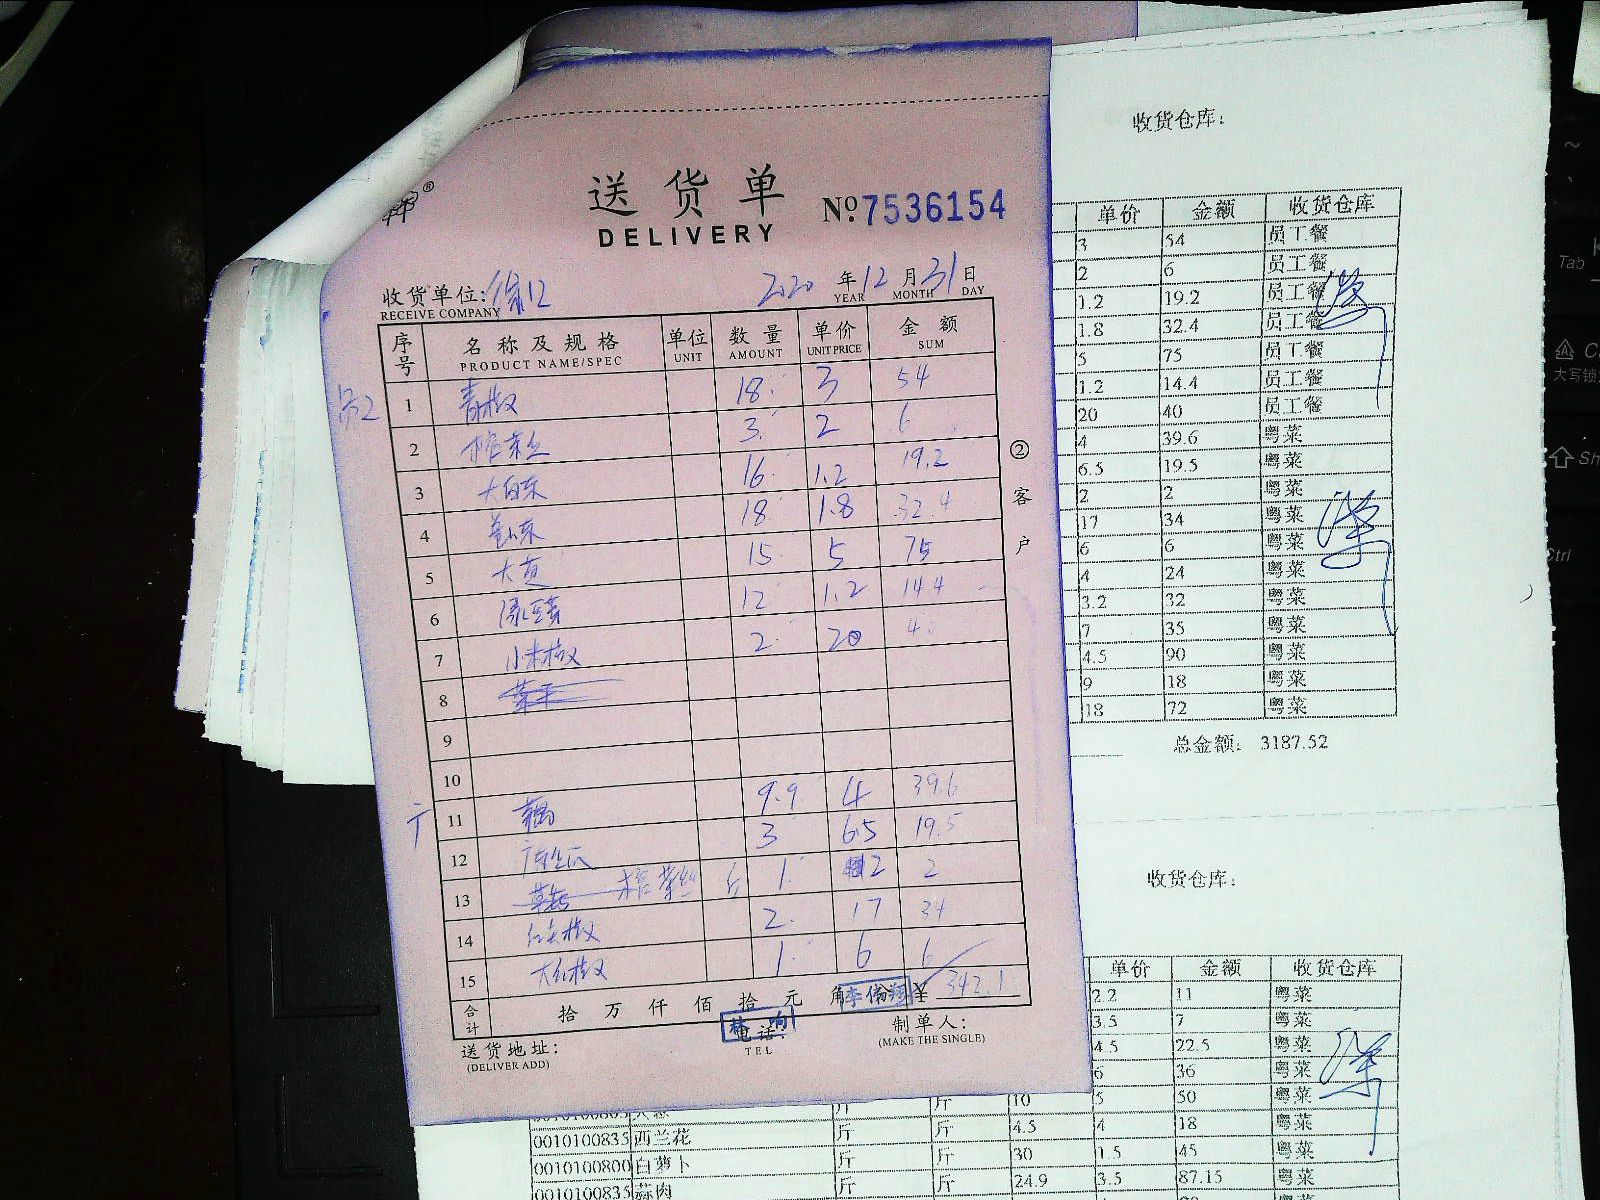 送货单
DELIVERY
№ 7536154
收货单位:
RECEIVE COMPANY
2020 年 12 月 31 日
YEAR MONTH DAY
序号 名称及规格 单位 数量 单价 金额
PRODUCT NAME/SPEC UNIT AMOUNT UNIT PRICE SUM
1 青椒 18 3 54
2 榨菜丝 3 2 6
3 大白菜 16 1.2 19.2
4 18 1.8 32.4
5 15 5 75
6 绿豆芽 12 1.2 14.4
7 小米椒 2 20 40
8
9
10
11 9.9 4 39.6
12 3 6.5 19.5
13 榨菜丝 斤 1 2 2
14 红尖椒 2 17 34
15 大红椒 1 6 6
合计 拾万仟佰拾元角 ¥ 342.1
李伟翔
送货地址:
(DELIVER ADD)
电话:
TEL
制单人:
(MAKE THE SINGLE)
②客户
收货仓库:
单价 金额 收货仓库
3 54 员工餐
2 6 员工餐
1.2 19.2 员工餐
1.8 32.4 员工餐
5 75 员工餐
1.2 14.4 员工餐
20 40 员工餐
4 39.6 粤菜
6.5 19.5 粤菜
2 2 粤菜
17 34 粤菜
6 6 粤菜
4 24 粤菜
3.2 32 粤菜
7 35 粤菜
4.5 90 粤菜
9 18 粤菜
18 72 粤菜
总金额: 3187.52
收货仓库:
单价 金额 收货仓库
2.2 11 粤菜
3.5 7 粤菜
4.5 22.5 粤菜
6 36 粤菜
斤 斤 10 5 50 粤菜
0010100835 西兰花 斤 斤 4.5 4 18 粤菜
0010100800 白萝卜 斤 斤 30 1.5 45 粤菜
0010100835 蒜肉 斤 斤 24.9 3.5 87.15 粤菜
Tab
大写锁
Sh
Ctrl